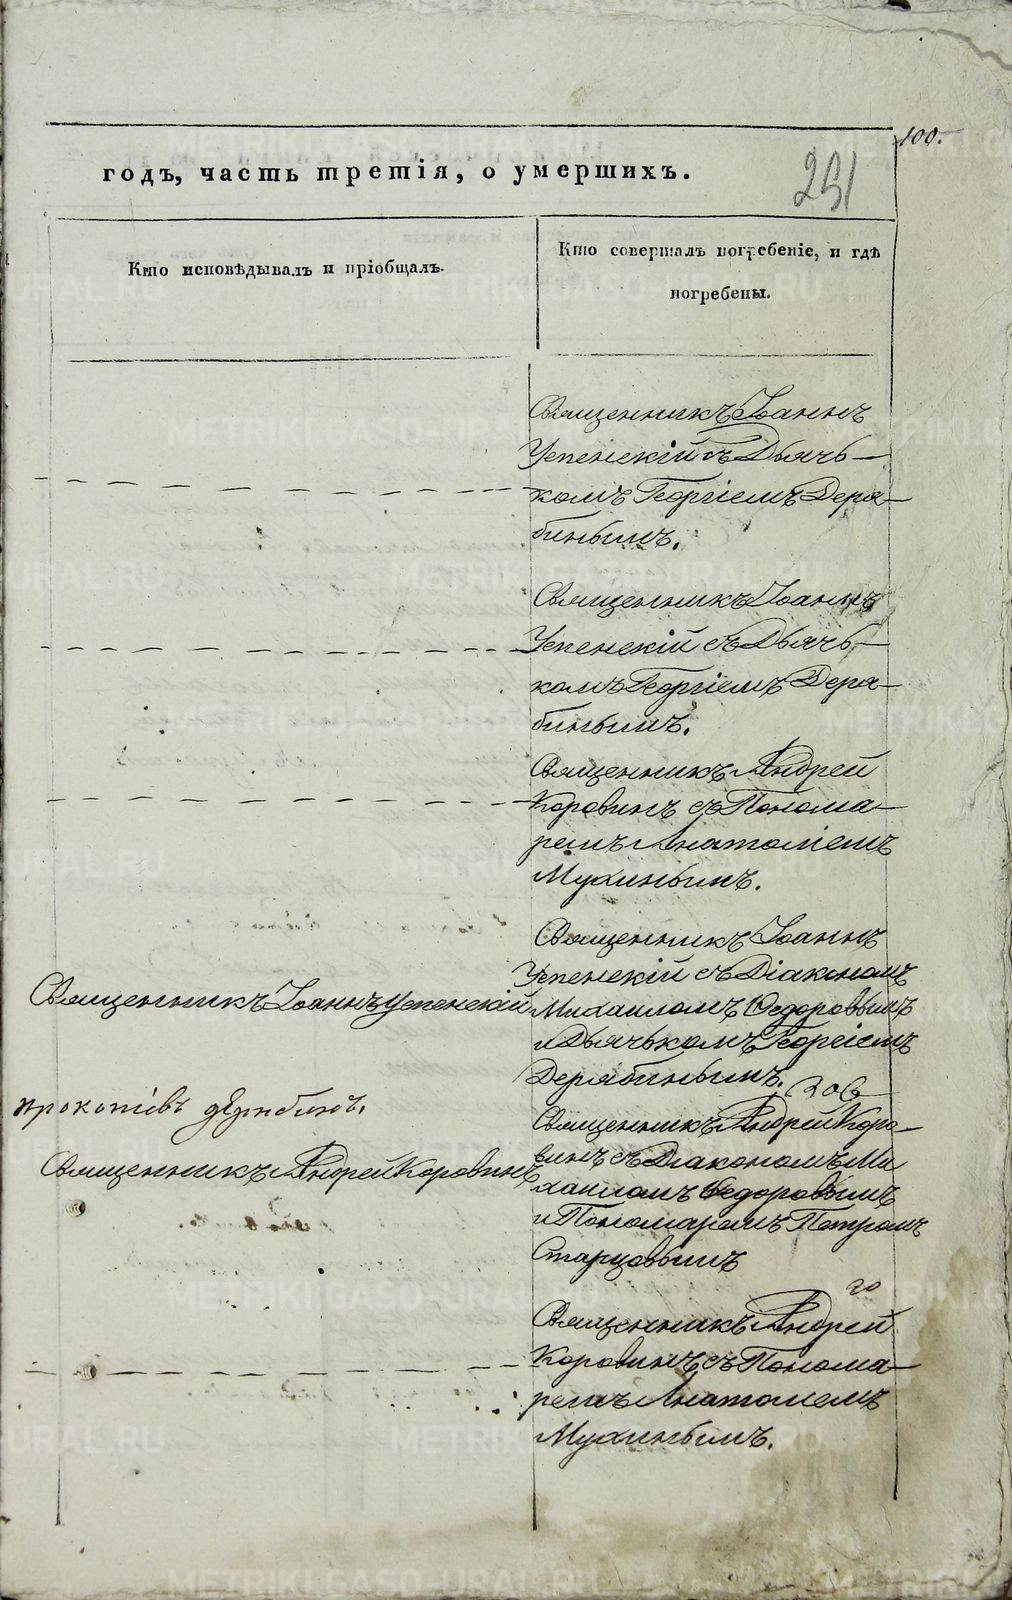 100.
годъ, часть третія, о умершихъ.
251
Кто исповѣдывалъ и пріобщалъ.
Кто совершалъ погребеніе, и гдѣ
погребены.
Священникъ Іоаннъ
Успенскій съ Дьячь-
комъ Георгіемъ Деря-
бинымъ.
Священникъ Іоаннъ
Успенскій съ Дьячь-
комъ Георгіемъ Деря-
бинымъ.
Священникъ Андрей
Коровинъ съ Понома-
ремъ Анатоліемъ
Мухинымъ.
Священникъ Іоаннъ
Успенскій съ Діакономъ
Священникъ Іоаннъ Успенскій
Михаиломъ Ѳедоровымъ
и Дьячькомъ Георгіемъ
Дерябинымъ.
прокопіевъ дерябинъ.
Священникъ Андрей Коро-
винъ съ Діакономъ Ми
Священникъ Андрей Коровинъ
хаиломъ Ѳедоровымъ
и Пономаремъ Петромъ
Старцовымъ
Священникъ Андрей
Коровинъ съ Понома-
ремъ Анатолиемъ
Мухинымъ.
METRIKI.GASO-URAL.RU